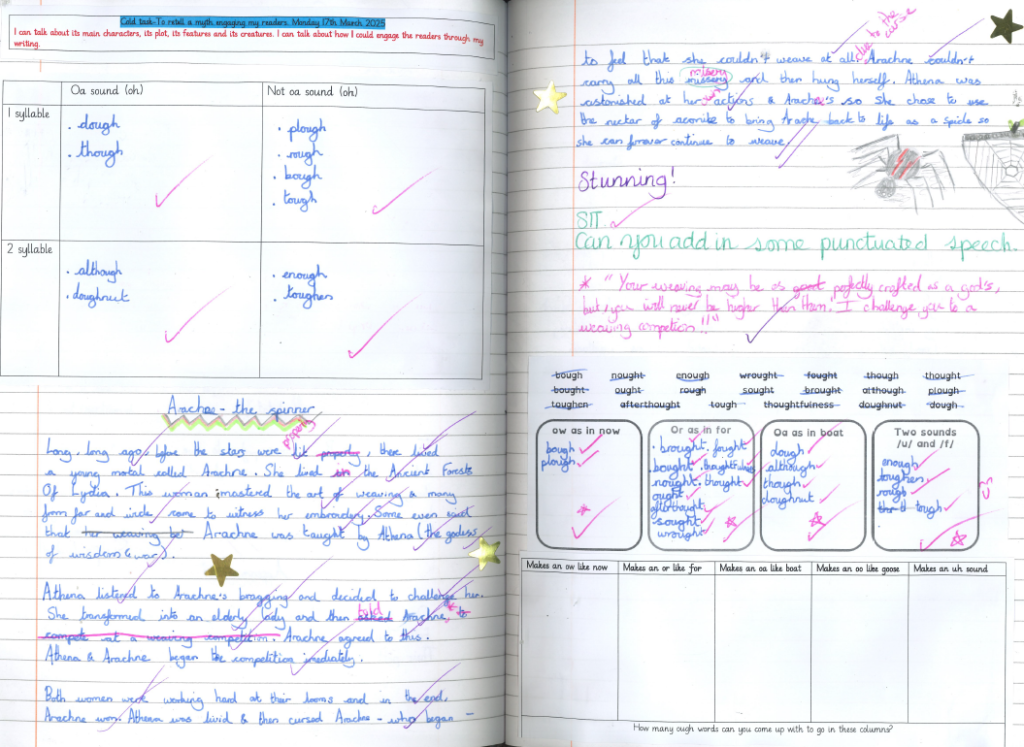 Cold task: To retell a myth engaging my readers. Monday 17th March 2025
I can talk about its main characters, its plot, its features and its creatures. I can talk about how I could engage the readers through my
writing.
Oa sound (oh)
Not oa sound (oh)
1 syllable
• dough
• though
• plough
• rough
• bough
• tough
2 syllable
• although
• doughnut
• enough
• toughen
Arachne - the spinner
Long, long ago, before the stars were lit properly, there lived
a young mortal called Arachne. She lived in the Ancient Forests
Of Lydia. This woman mastered the art of weaving & many
from far and wide came to witness her embroidery. Some even said
that her weaving bet Arachne was taught by Athena (the godess
of wisdom & war).
Athena listened to Arachne's bragging and decided to challenge her.
She transformed into an elderly lady and then asked told Arachne, * to
compete at a weaving competition. Arachne agreed to this.
Athena & Arachne began the competition imediately.
Both women were working hard at their looms and in the end,
Arachne won. Athena was livid & then cursed Arachne - who began -
due to the curse
to feel that she couldn't weave at all. Arachne couldn't
misery
carry all this missery and then hung herself. Athena was
astonished at her own actions & Arachne's so she chose to use
the nectar of aconite to bring Arachne back to life as a spider so
she can forever continue to weave.
Stunning!
SIT
Can you add in some punctuated speech.
* "Your weaving may be as good perfectly crafted as a god's,
but, you will never be higher than them. I challenge, you to a
weaving competion!"
bough nought enough wrought fought though thought
bought ought rough sought brought although plough
toughen afterthought tough thoughtfulness doughnut dough
ow as in now
bough
plough
Or as in for
• brought. fought
bought. thoughtfulness
nought. thought
ought
afterthought
sought
wrought
Oa as in boat
dough
although
though
doughnut
Two sounds
/u/ and /f/
enough
toughen
rough
tough
Makes an ow like now
Makes an or like for
Makes an oa like boat
Makes an oo like goose
Makes an uh sound
How many ough words can you come up with to go in these columns?